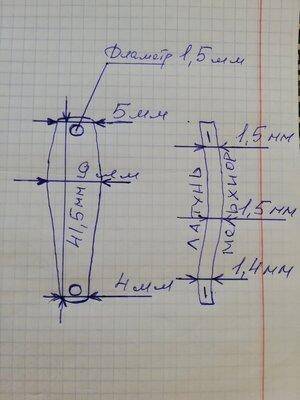 Диаметр 1,5мм
5мм
9мм
41,5мм
4мм
1,5мм
1,5мм
1,4мм
ЛАТУНЬ
МЕЛЬХИОР